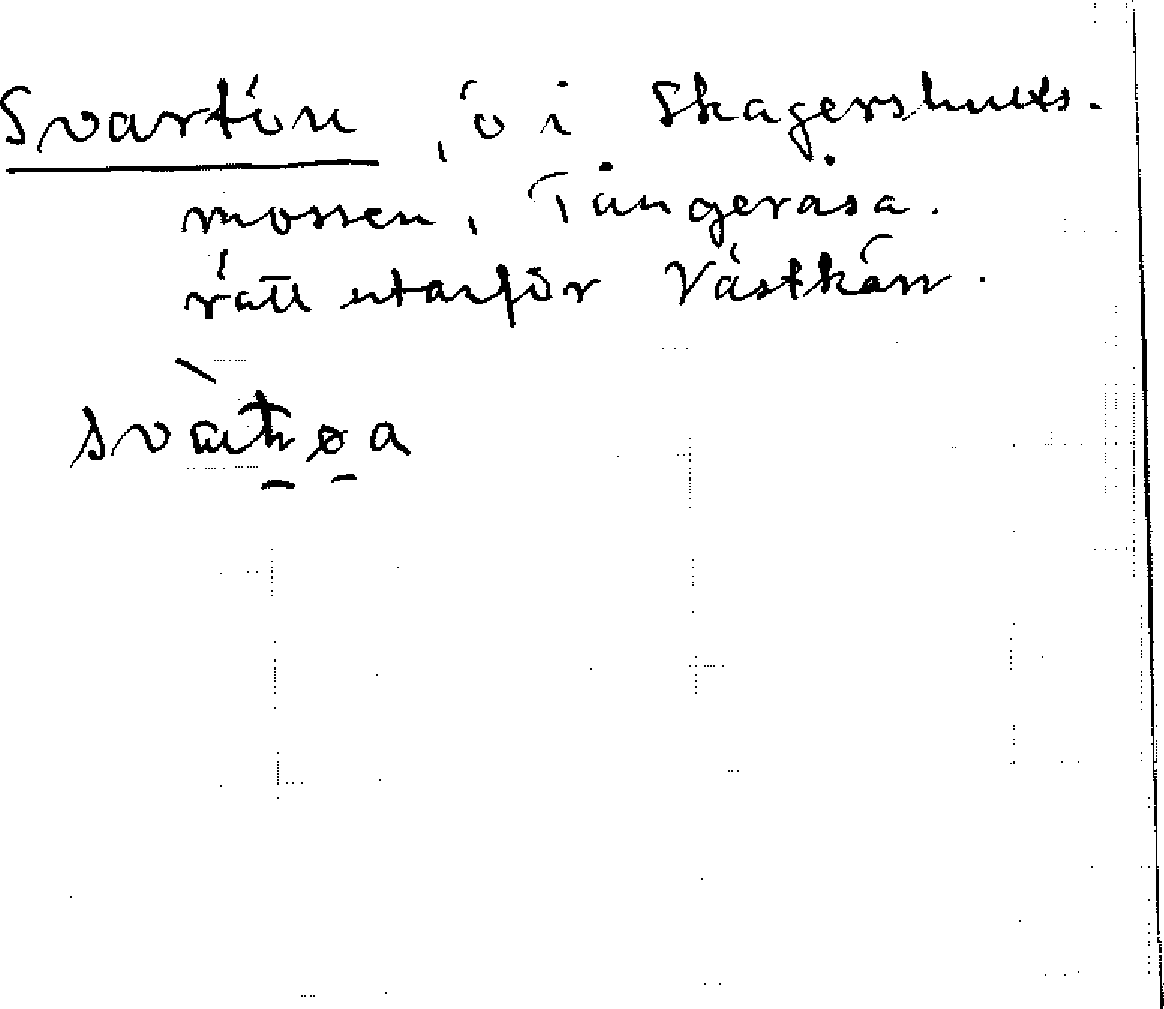 Svartön, ö i Skagershults-
mossen, Tångeråsa.
rätt utanför Västkärr.